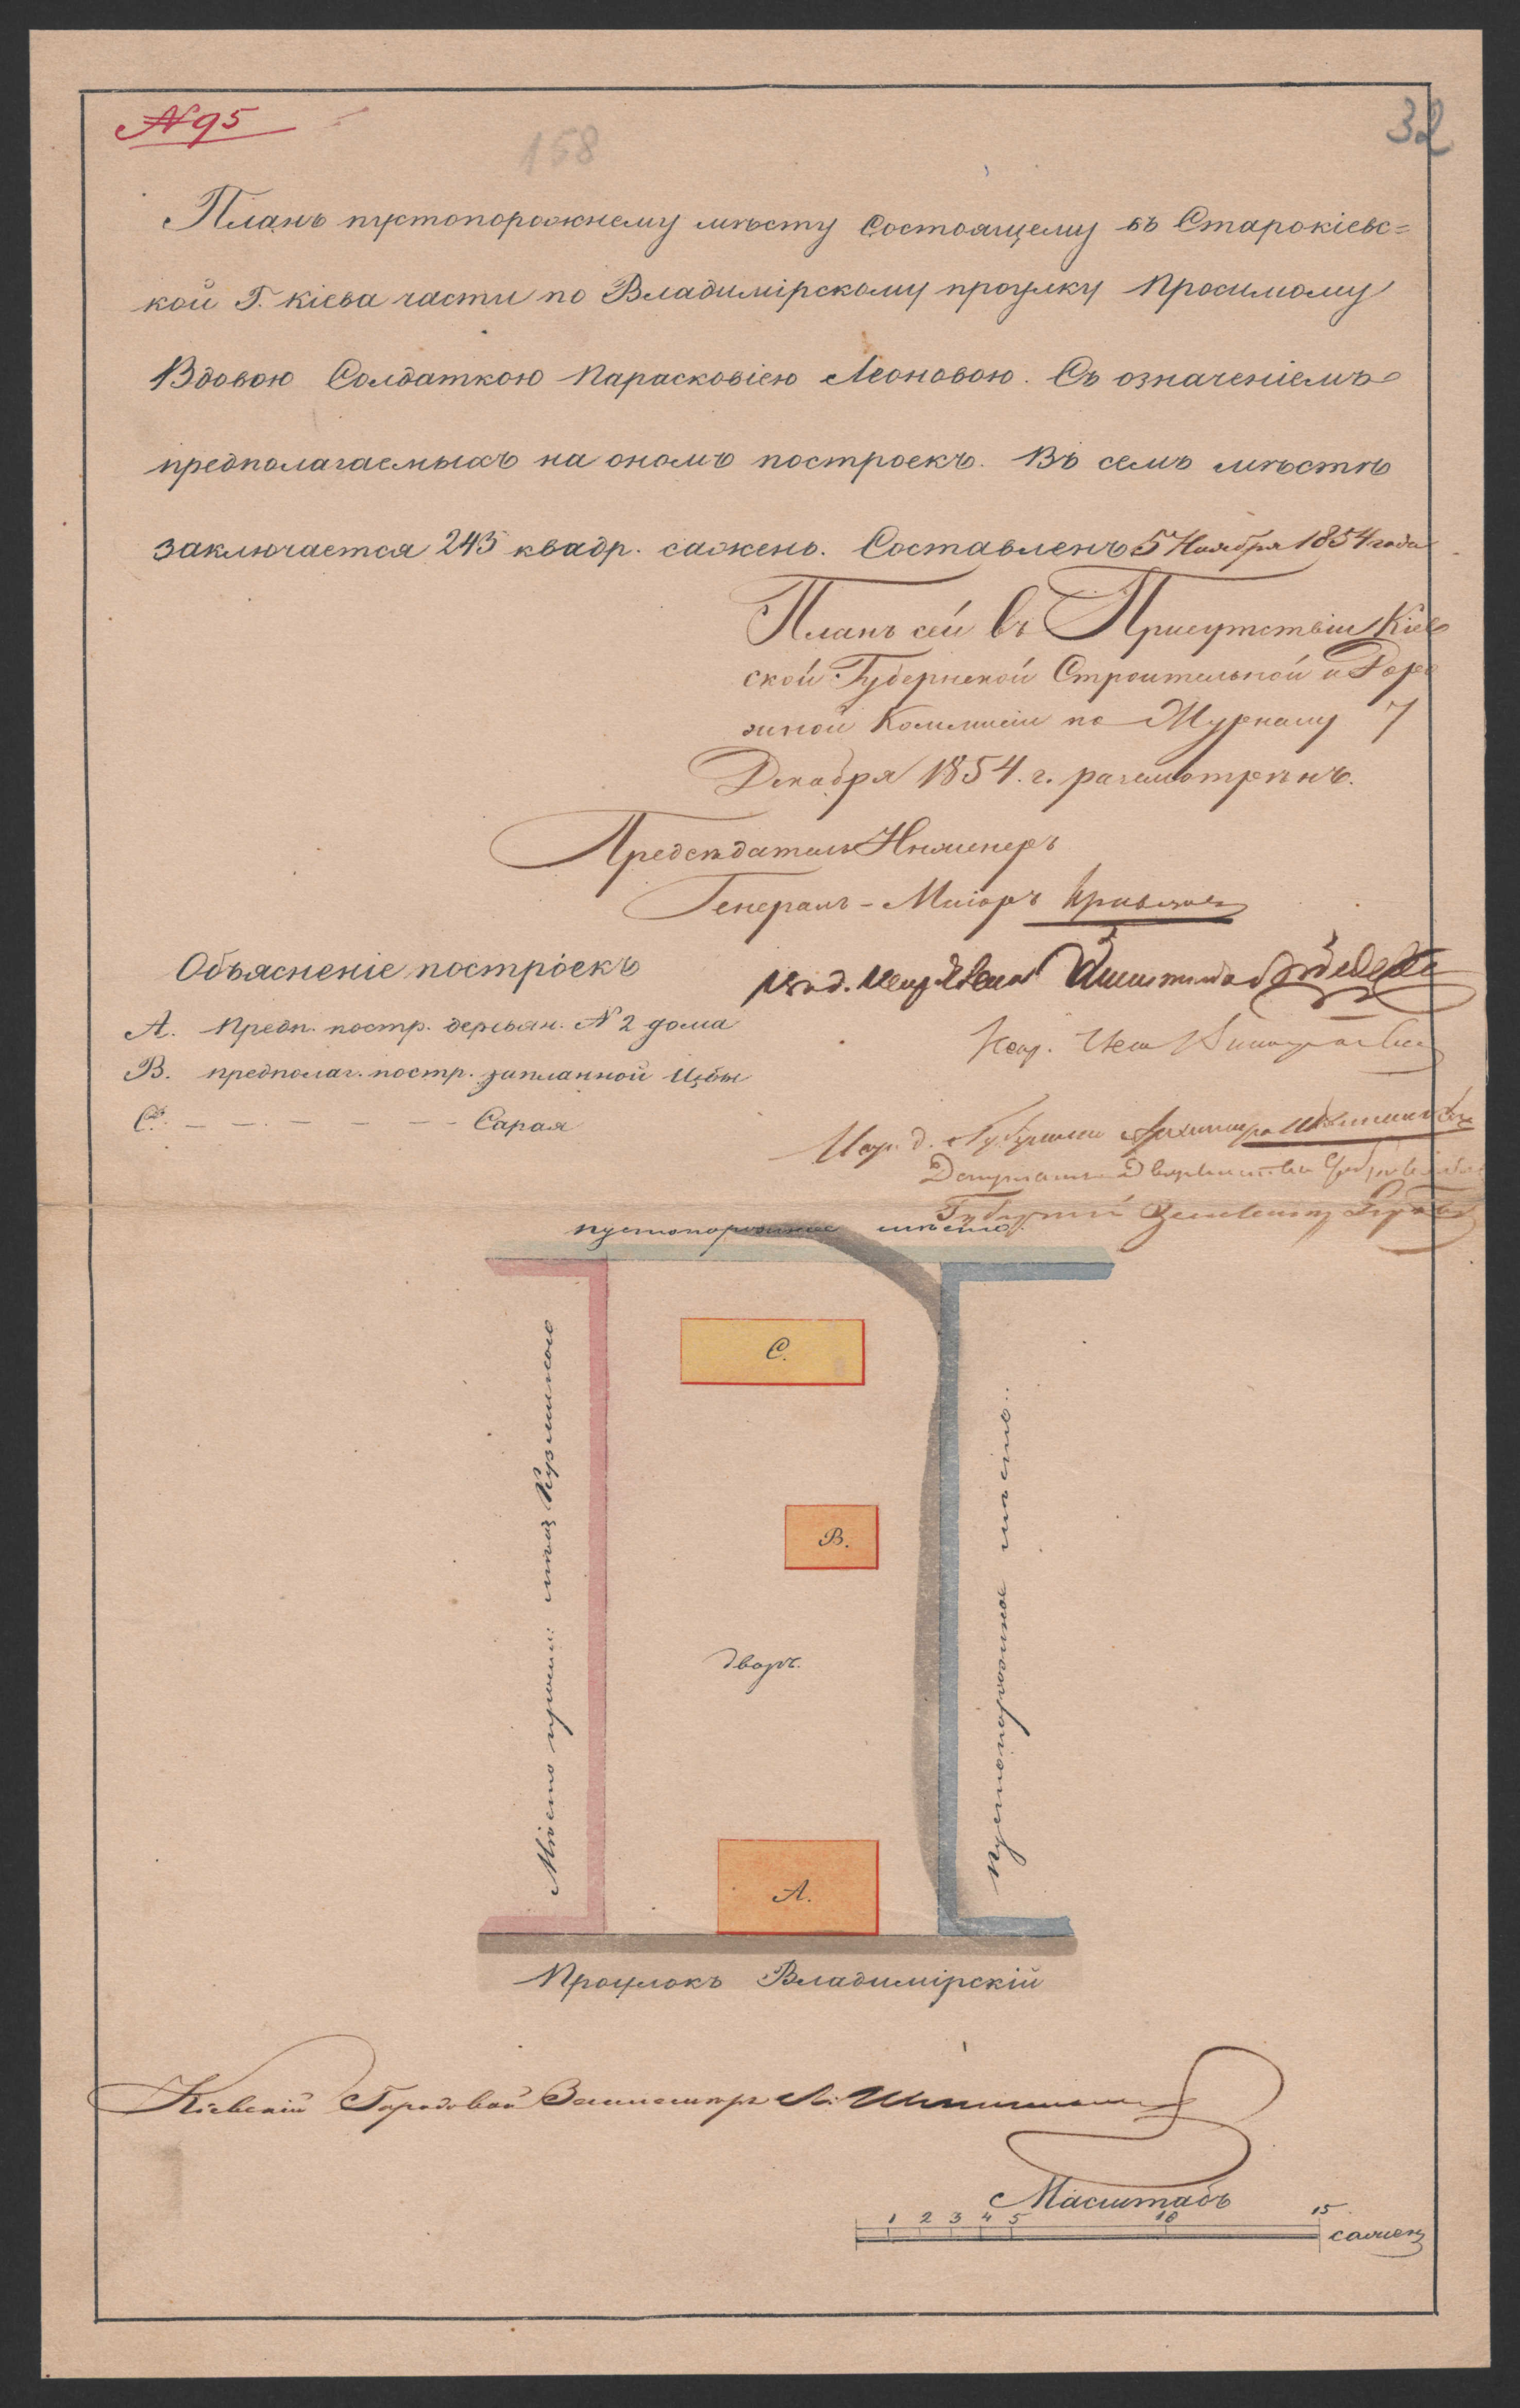 N 95
32
158
Планъ пустопорожнему мѣсту Состоящему въ Старокіевс=
кой Г. Кіева части по Владимірскому проулку Просимому
Вдовою Солдаткою Парасковіею Леоновою. Съ означеніемъ
предполагаемыхъ на ономъ построекъ. Въ семъ мѣстѣ
заключается 243 квадр. сажень. Составленъ 5 Ноября 1854 года
Планъ сей въ Присутствіи Кіев
ской Губернской Строительной и Доро
жной Коммисіи по Журналу 7
Декабря 1854. г. разсмотрѣнъ.
Предсѣдатель Инженеръ
Генералъ-Маіоръ
Объясненіе построекъ
А. Предп. постр. деревян. N 2 дома
В. предполаг. постр. Избы
С. — — — — — — Сарая
Губернскій
пустопорожнее мѣсто.
С.
Мѣсто
В.
дворъ.
пустопорожнее мѣсто..
А.
Проулокъ Владимірскій
Кіевскій Городовой Землемѣръ
Масштабъ
1 2 3 4 5 10 15
сажен